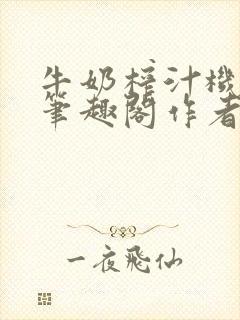 牛奶榨汁機
筆趣閣作者
一夜飛仙